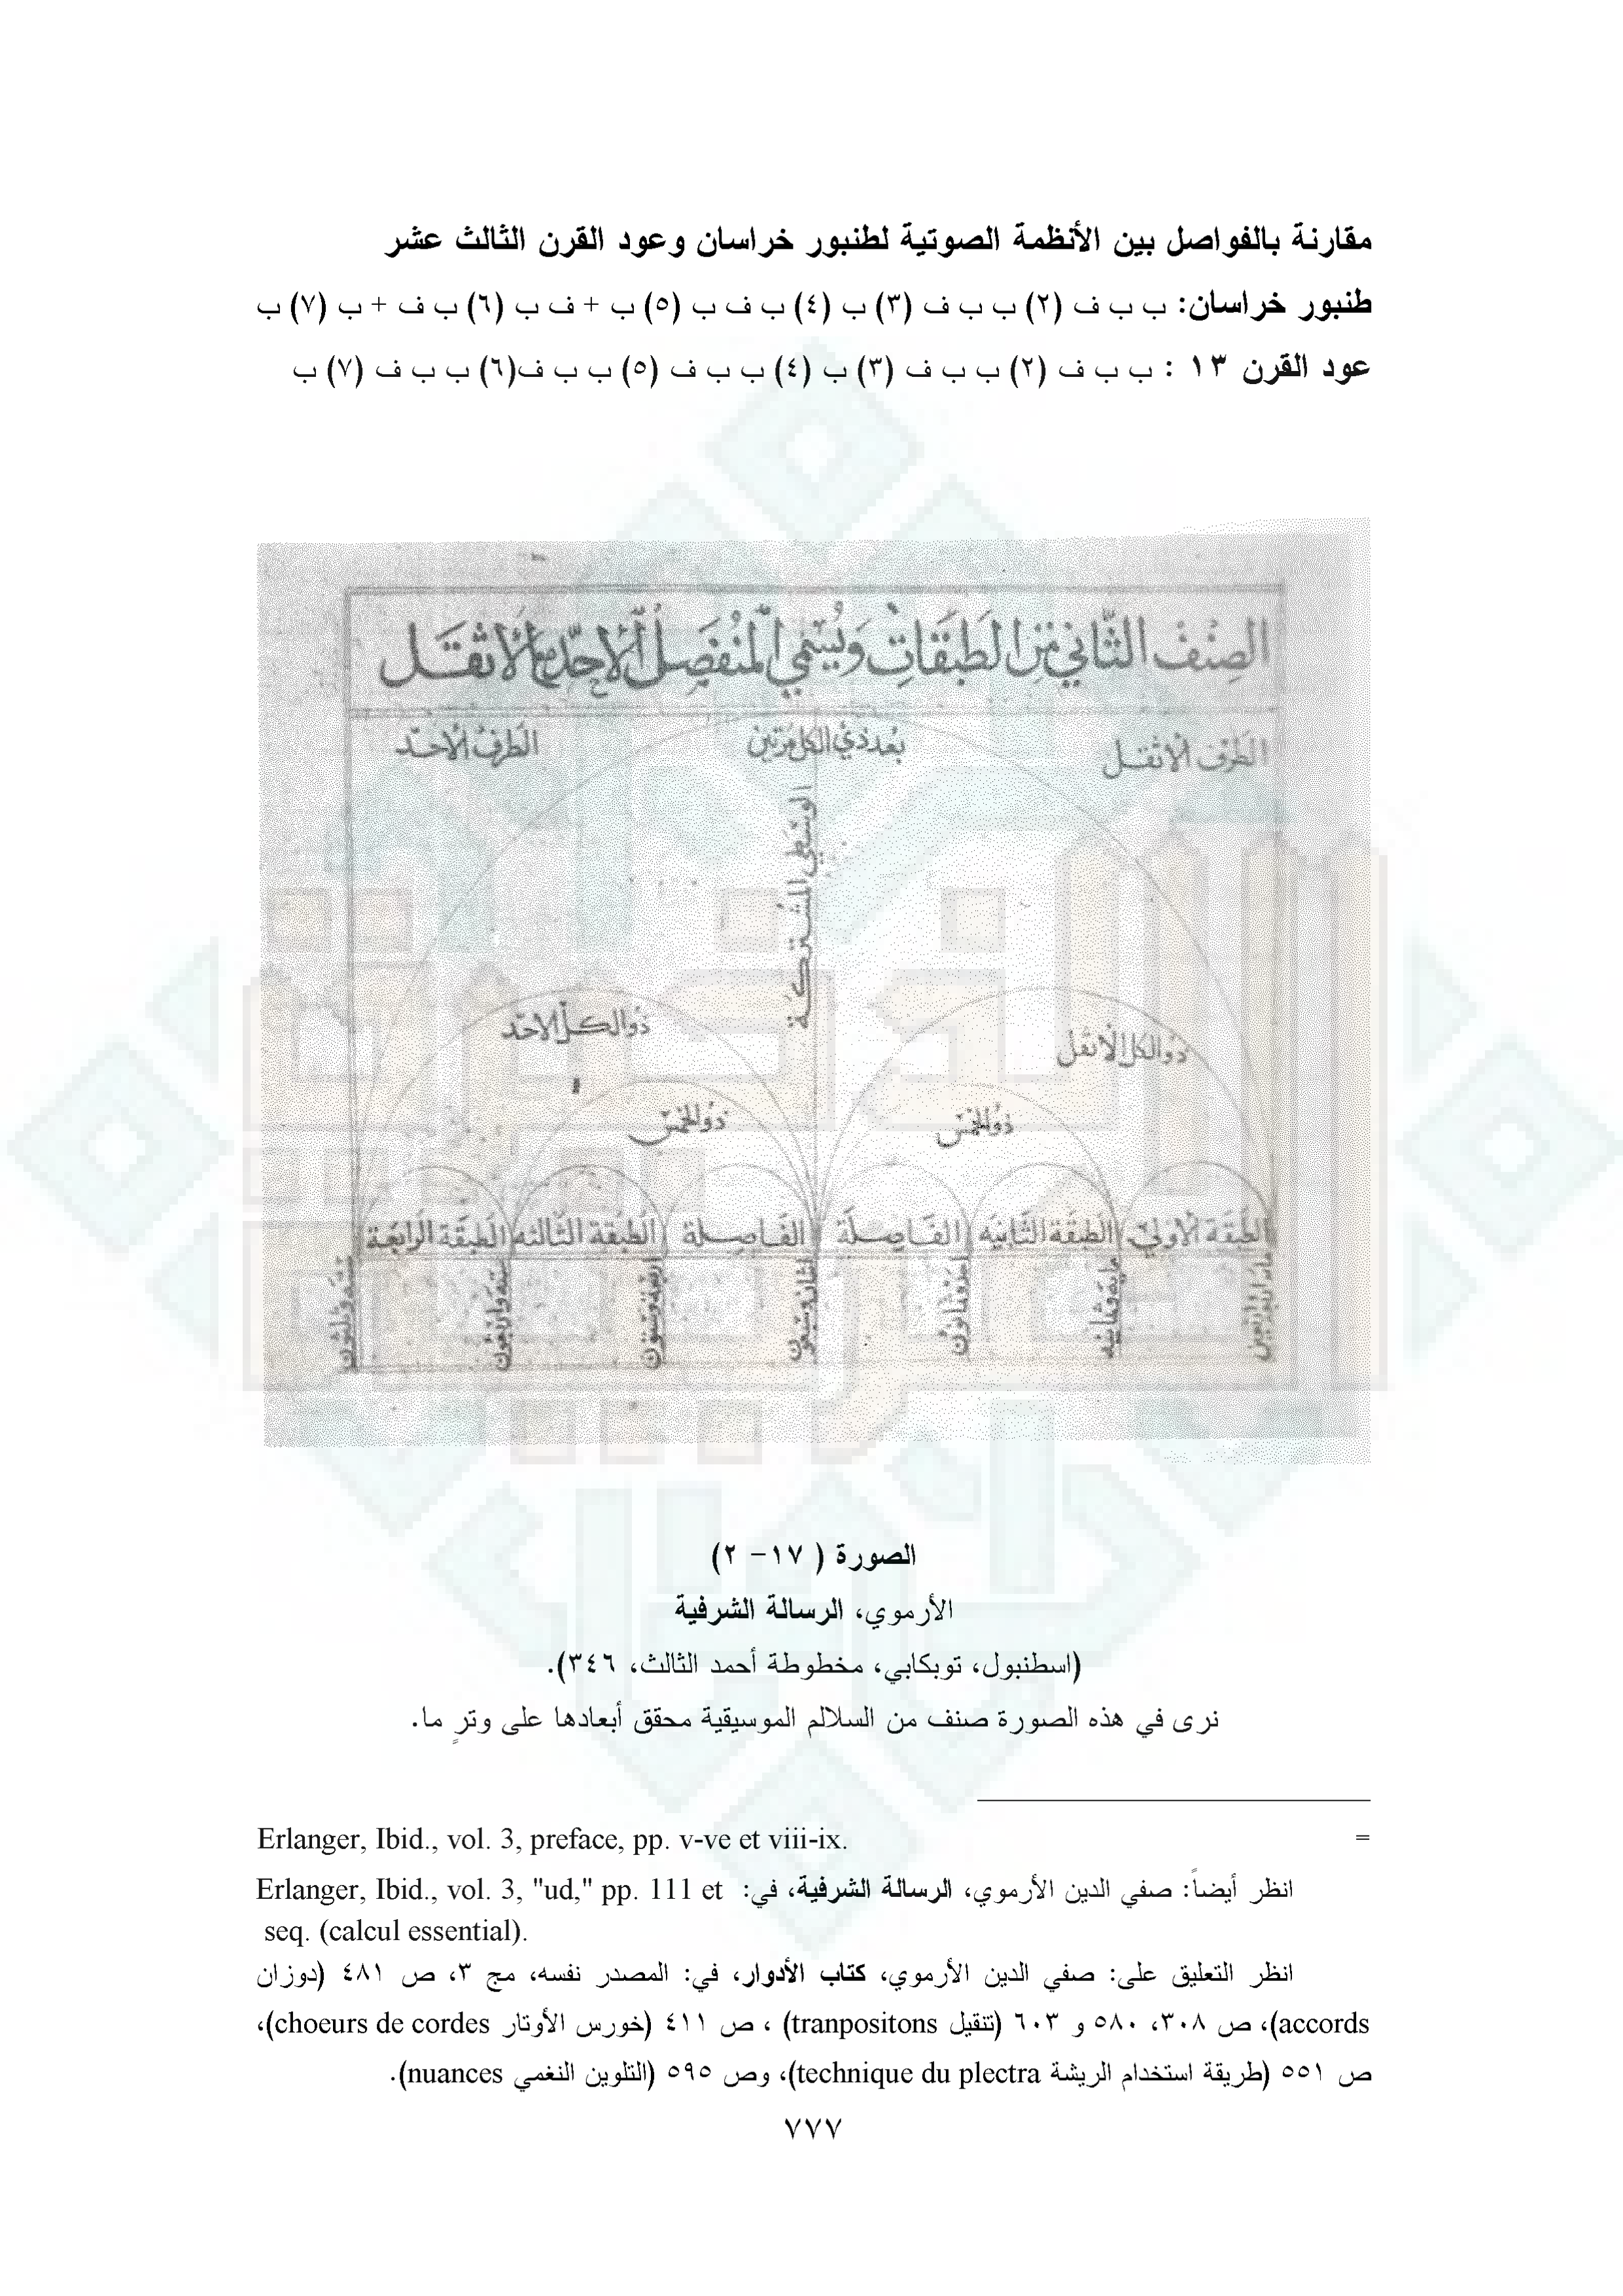 مقارنة بالفواصل بين الأنظمة الصوتية لطنبور خراسان وعود القرن الثالث عشر
طنبور خراسان: ب ب ف (٢) ب ب ف (٣) ب (٤) ب ف ب (٥) ب + ف ب (٦) ب ف + ب (٧) ب
عود القرن ١٣ : ب ب ف (٢) ب ب ف (٣) ب (٤) ب ب ف (٥) ب ب ف(٦) ب ب ف (٧) ب
الصنف الثاني من الطبقات ويسمى المنفصل الأحد الأثقل
الطرف الأثقل
بعد ذي الكل مرتين
الطرف الأحد
الوسطى المشتركة
ذو الكل الأثقل
ذو الكل الأحد
ذو الخمس
ذو الخمس
الطبقة الأولى
الطبقة الثانية
الفاصلة
الفاصلة
الطبقة الثالثة
الطبقة الرابعة
مايه وثمانيه
أحد وثمانون
اثنان وسبعون
أربعة وستون
الصورة ( ١٧- ٢)
الأرموي، الرسالة الشرفية
(اسطنبول، توبكابي، مخطوطة أحمد الثالث، ٣٤٦).
نرى في هذه الصورة صنف من السلالم الموسيقية محقق أبعادها على وترٍ ما.
= Erlanger, Ibid., vol. 3, preface, pp. v-ve et viii-ix.
انظر أيضاً: صفي الدين الأرموي، الرسالة الشرفية، في: Erlanger, Ibid., vol. 3, "ud," pp. 111 et
seq. (calcul essential).
انظر التعليق على: صفي الدين الأرموي، كتاب الأدوار، في: المصدر نفسه، مج ٣، ص ٤٨١ (دوزان
accords)، ص ٣٠٨، ٥٨٠ و ٦٠٣ (تنقيل tranpositons) ، ص ٤١١ (خورس الأوتار choeurs de cordes)،
ص ٥٥١ (طريقة استخدام الريشة technique du plectra)، وص ٥٩٥ (التلوين النغمي nuances).
٧٧٧